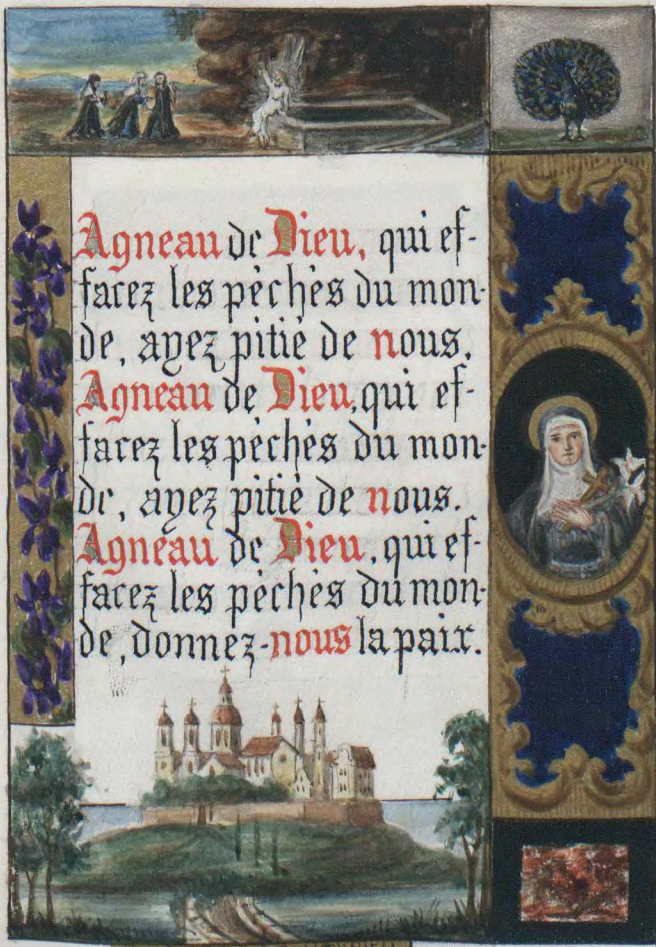 Agneau de Dieu, qui ef-
facez les pèchès du mon-
de, ayez pitiè de nous.
Agneau de Dieu, qui ef-
facez les pèchès du mon-
de, ayez pitiè de nous.
Agneau de Dieu, qui ef-
facez les pèchès du mon-
de, donnez-nous la paix.